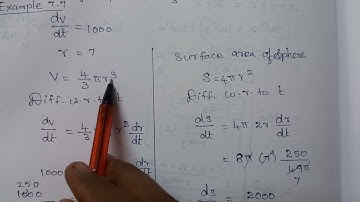 Example 7.7
dv/dt = 1000
r = 7
V = 4/3 πr³
Diff. w.r. to t
dv/dt = 4/3 r² dr/dt
1000
250
1000
Surface area of sphere
S = 4πr²
Diff. w.r. to t
ds/dt = 4π 2r dr/dt
= 8π (7) 250/49π
7
ds = 2000